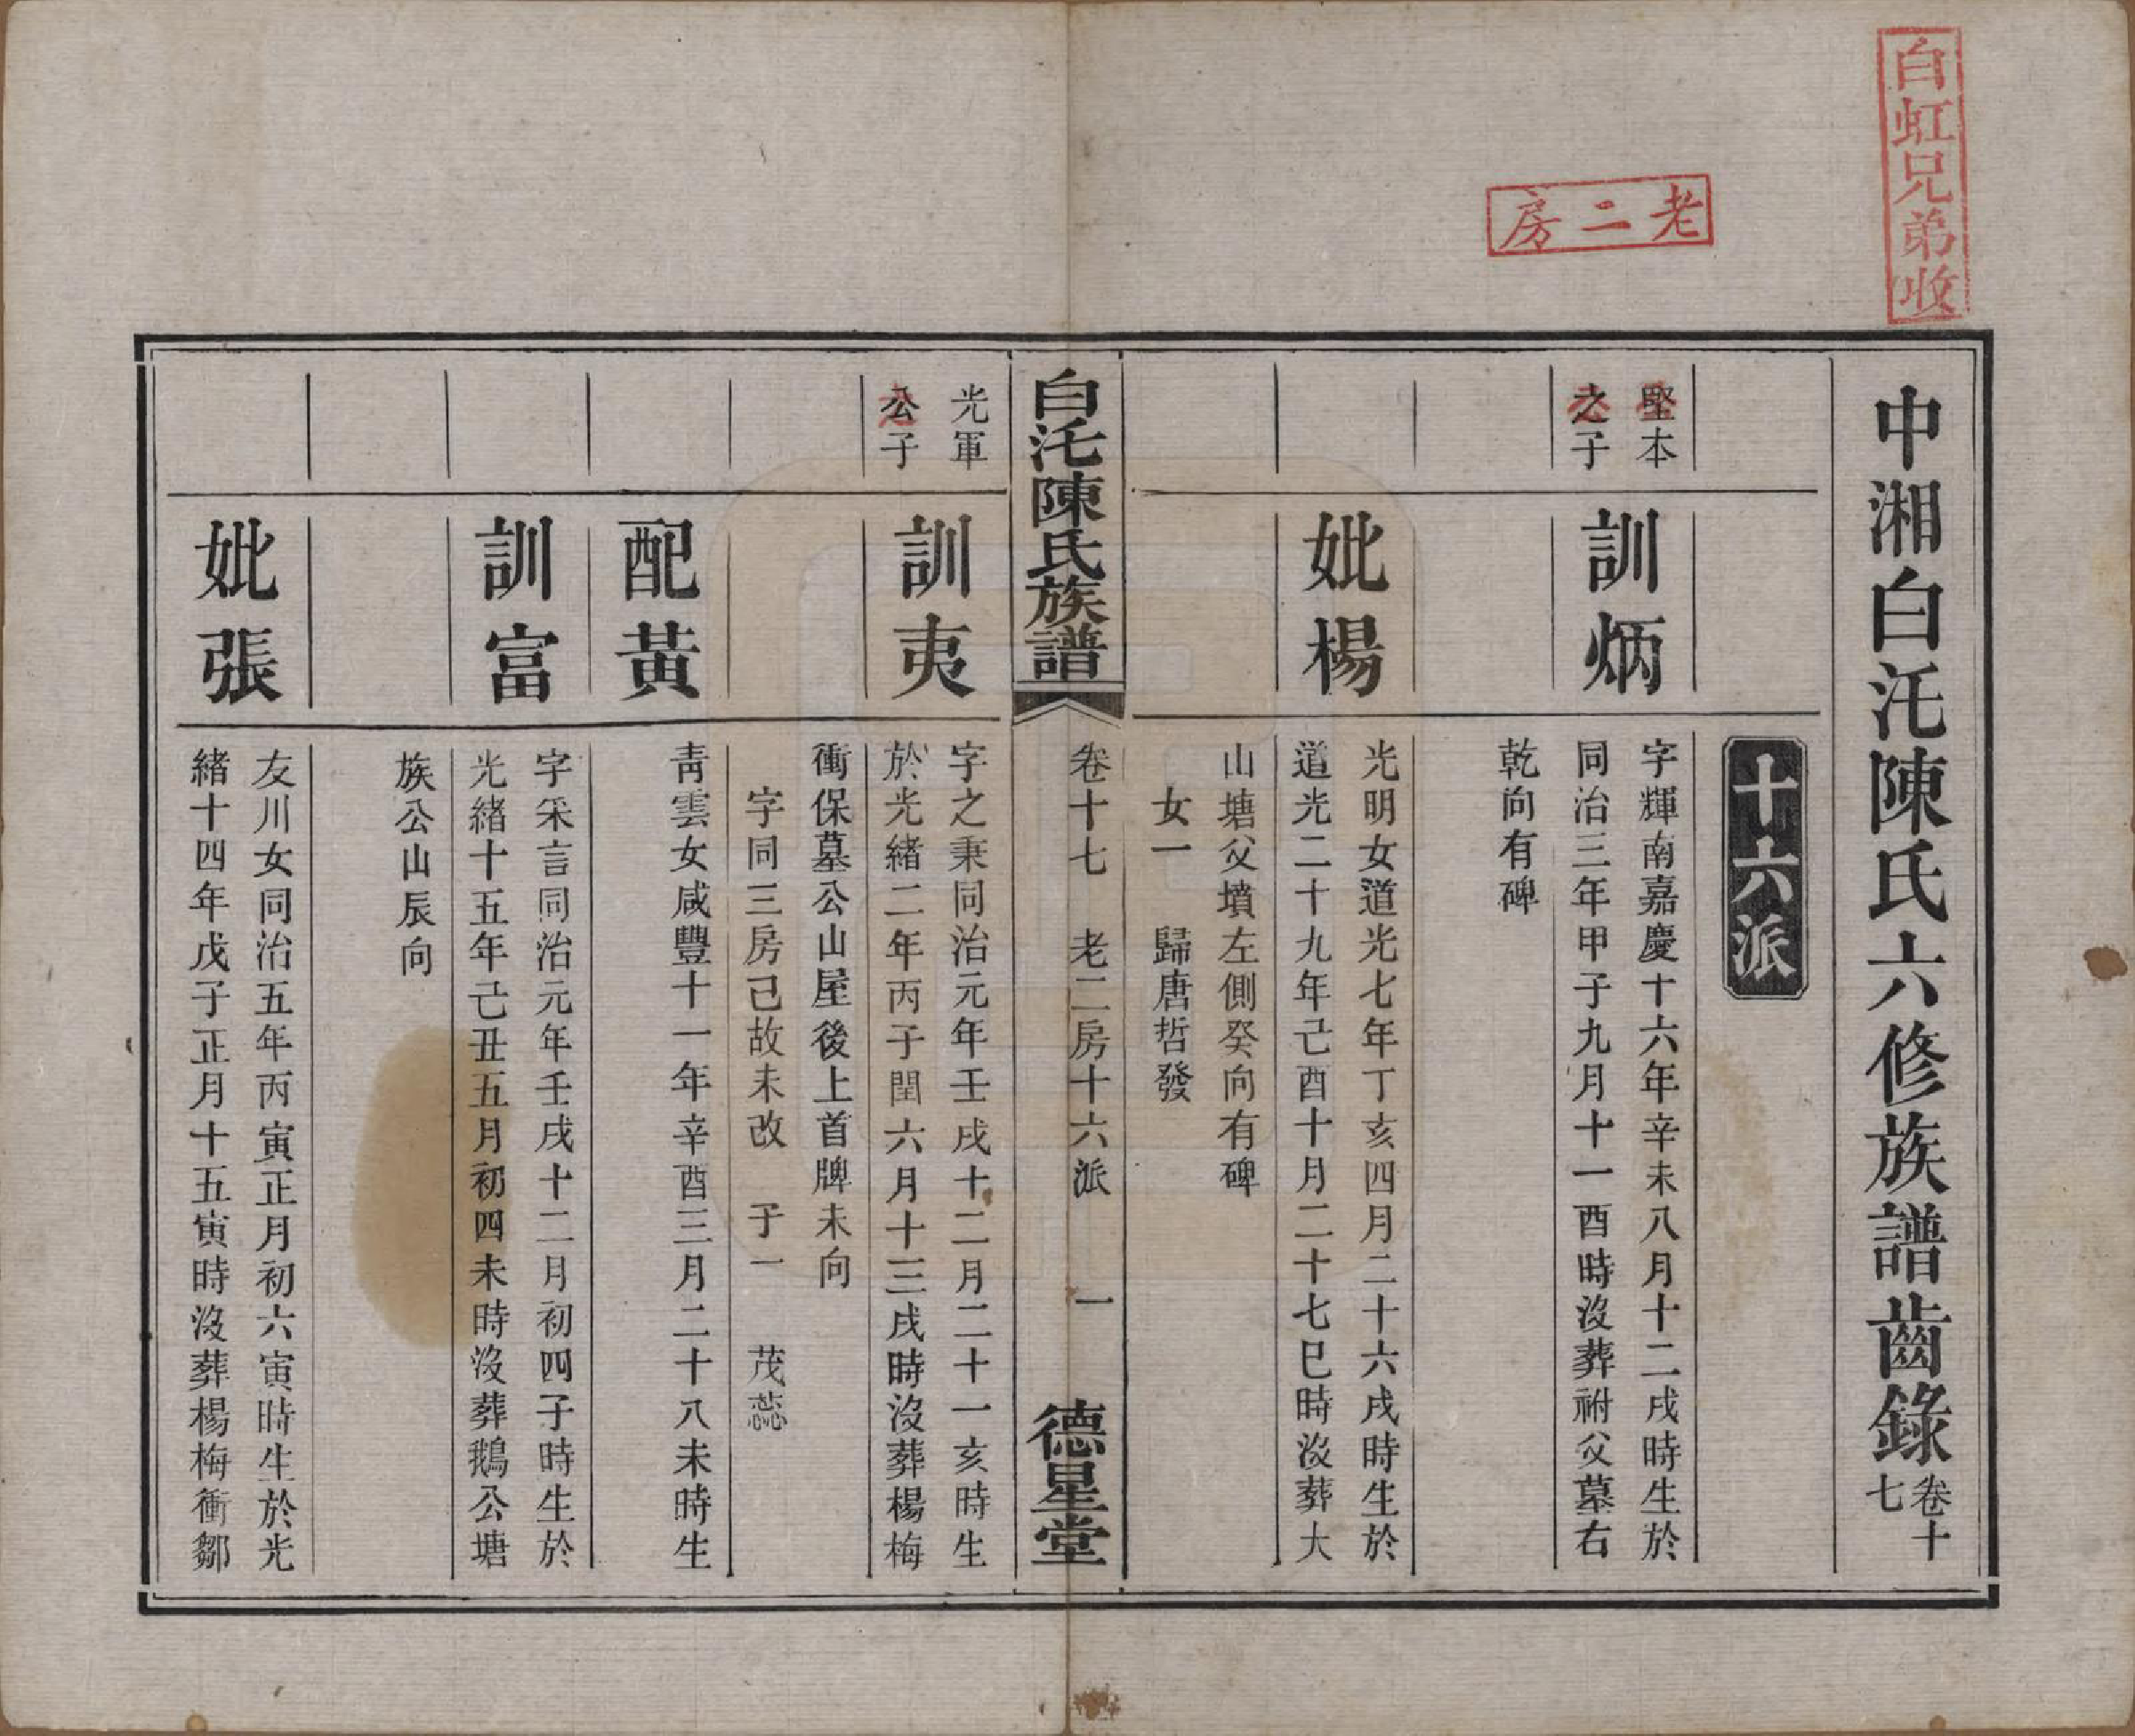 白虹兄弟收
老二房
中湘白汑陳氏六修族譜齒錄卷十七
十六派
堅本
之子
訓炳
字輝南嘉慶十六年辛未八月十二戌時生於
同治三年甲子九月十一酉時沒葬祔父墓右
乾向有碑
妣楊
光明女道光七年丁亥四月二十六戌時生於
道光二十九年己酉十月二十七巳時沒葬大
山塘父墳左側癸向有碑
女一 歸唐哲發
白汑陳氏族譜
卷十七 老二房十六派 一
德星堂
光軍
公子
訓夷
字之秉同治元年壬戌十二月二十一亥時生
於光緒二年丙子閏六月十三戌時沒葬楊梅
衝保墓公山屋後上首牌未向
字同三房己故未改 子一 茂蕊
配黃
靑雲女咸豐十一年辛酉三月二十八未時生
訓富
字采言同治元年壬戌十二月初四子時生於
光緒十五年己丑五月初四未時沒葬鵝公塘
族公山辰向
妣張
友川女同治五年丙寅正月初六寅時生於光
緒十四年戊子正月十五寅時沒葬楊梅衝鄒